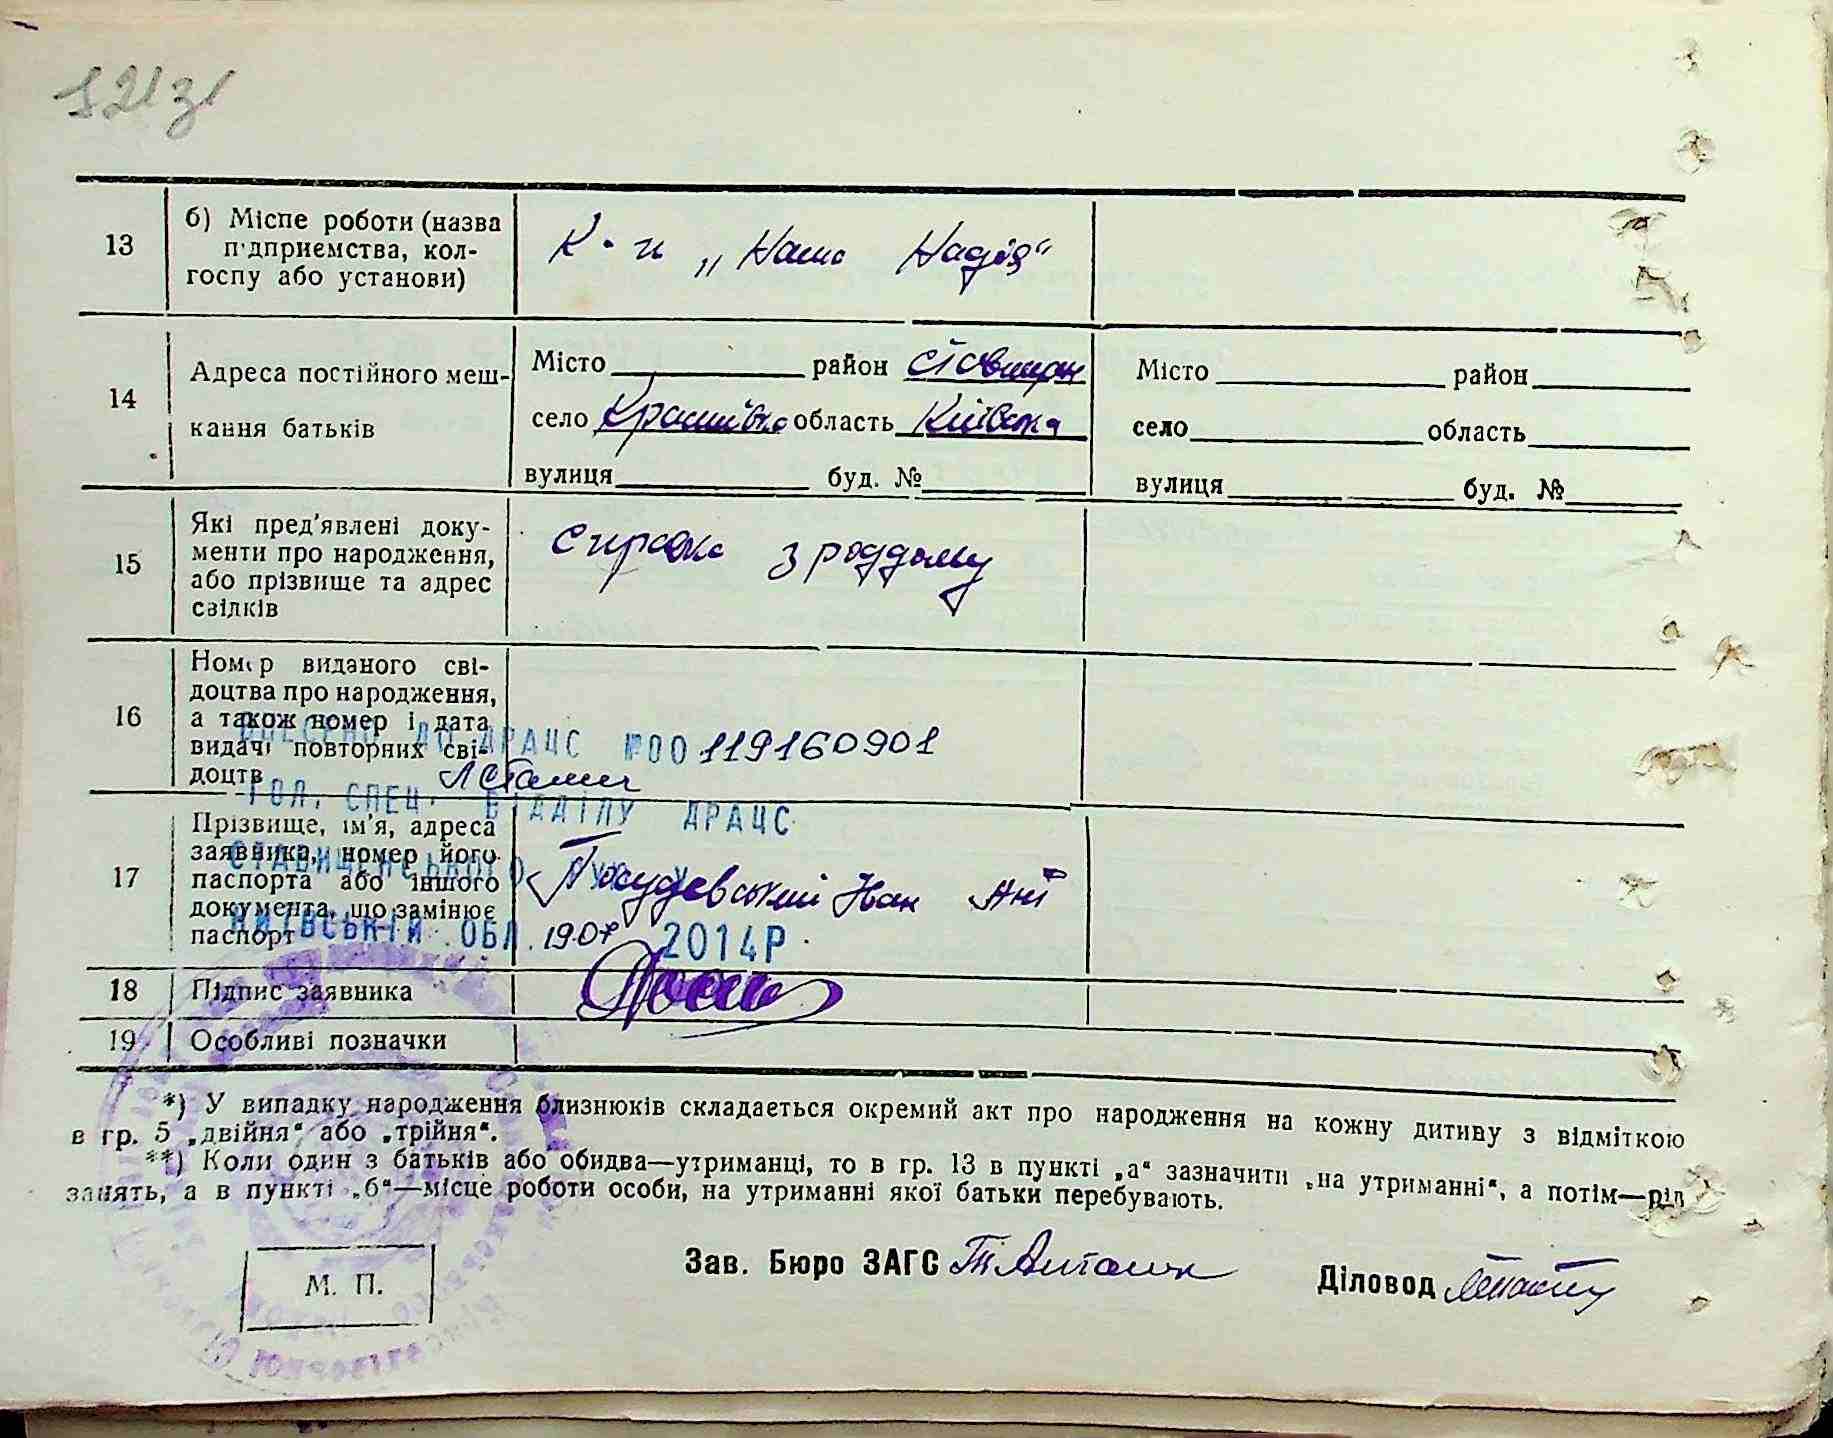 13
б) Місце роботи (назва
підприємства, кол-
госпу або установи)
К-п „Наша Надія“
14
Адреса постійного меш-
кання батьків
Місто район Ставищан
село область Київська
вулиця буд. №
Місто район
село область
вулиця буд. №
15
Які пред'явлені доку-
менти про народження,
або прізвище та адрес
свідків
справка з роддому
16
Номер виданого сві-
доцтва про народження,
а також номер і дата
видачі повторних сві-
доцтв
ВНЕСЕНО ДО ДРАЦС №00119160901
ГОЛ. СПЕЦ. ВІДДІЛУ ДРАЦС
17
Прізвище, ім'я, адреса
заявника, номер його
паспорта або іншого
документа, що замінює
паспорт
СТАВИЩЕНСЬКОГО
Іван Ант
КИЇВСЬКІЙ ОБЛ. 19.07 2014Р.
18
Підпис заявника
19
Особливі позначки
*) У випадку народження близнюків складається окремий акт про народження на кожну дитину з відміткою
в гр. 5 „двійня“ або „трійня“.
**) Коли один з батьків або обидва—утриманці, то в гр. 13 в пункті „а“ зазначити „на утриманні“, а потім—рід
занять, а в пункті „б“—місце роботи особи, на утриманні якої батьки перебувають.
М. П.
Зав. Бюро ЗАГС
Діловод